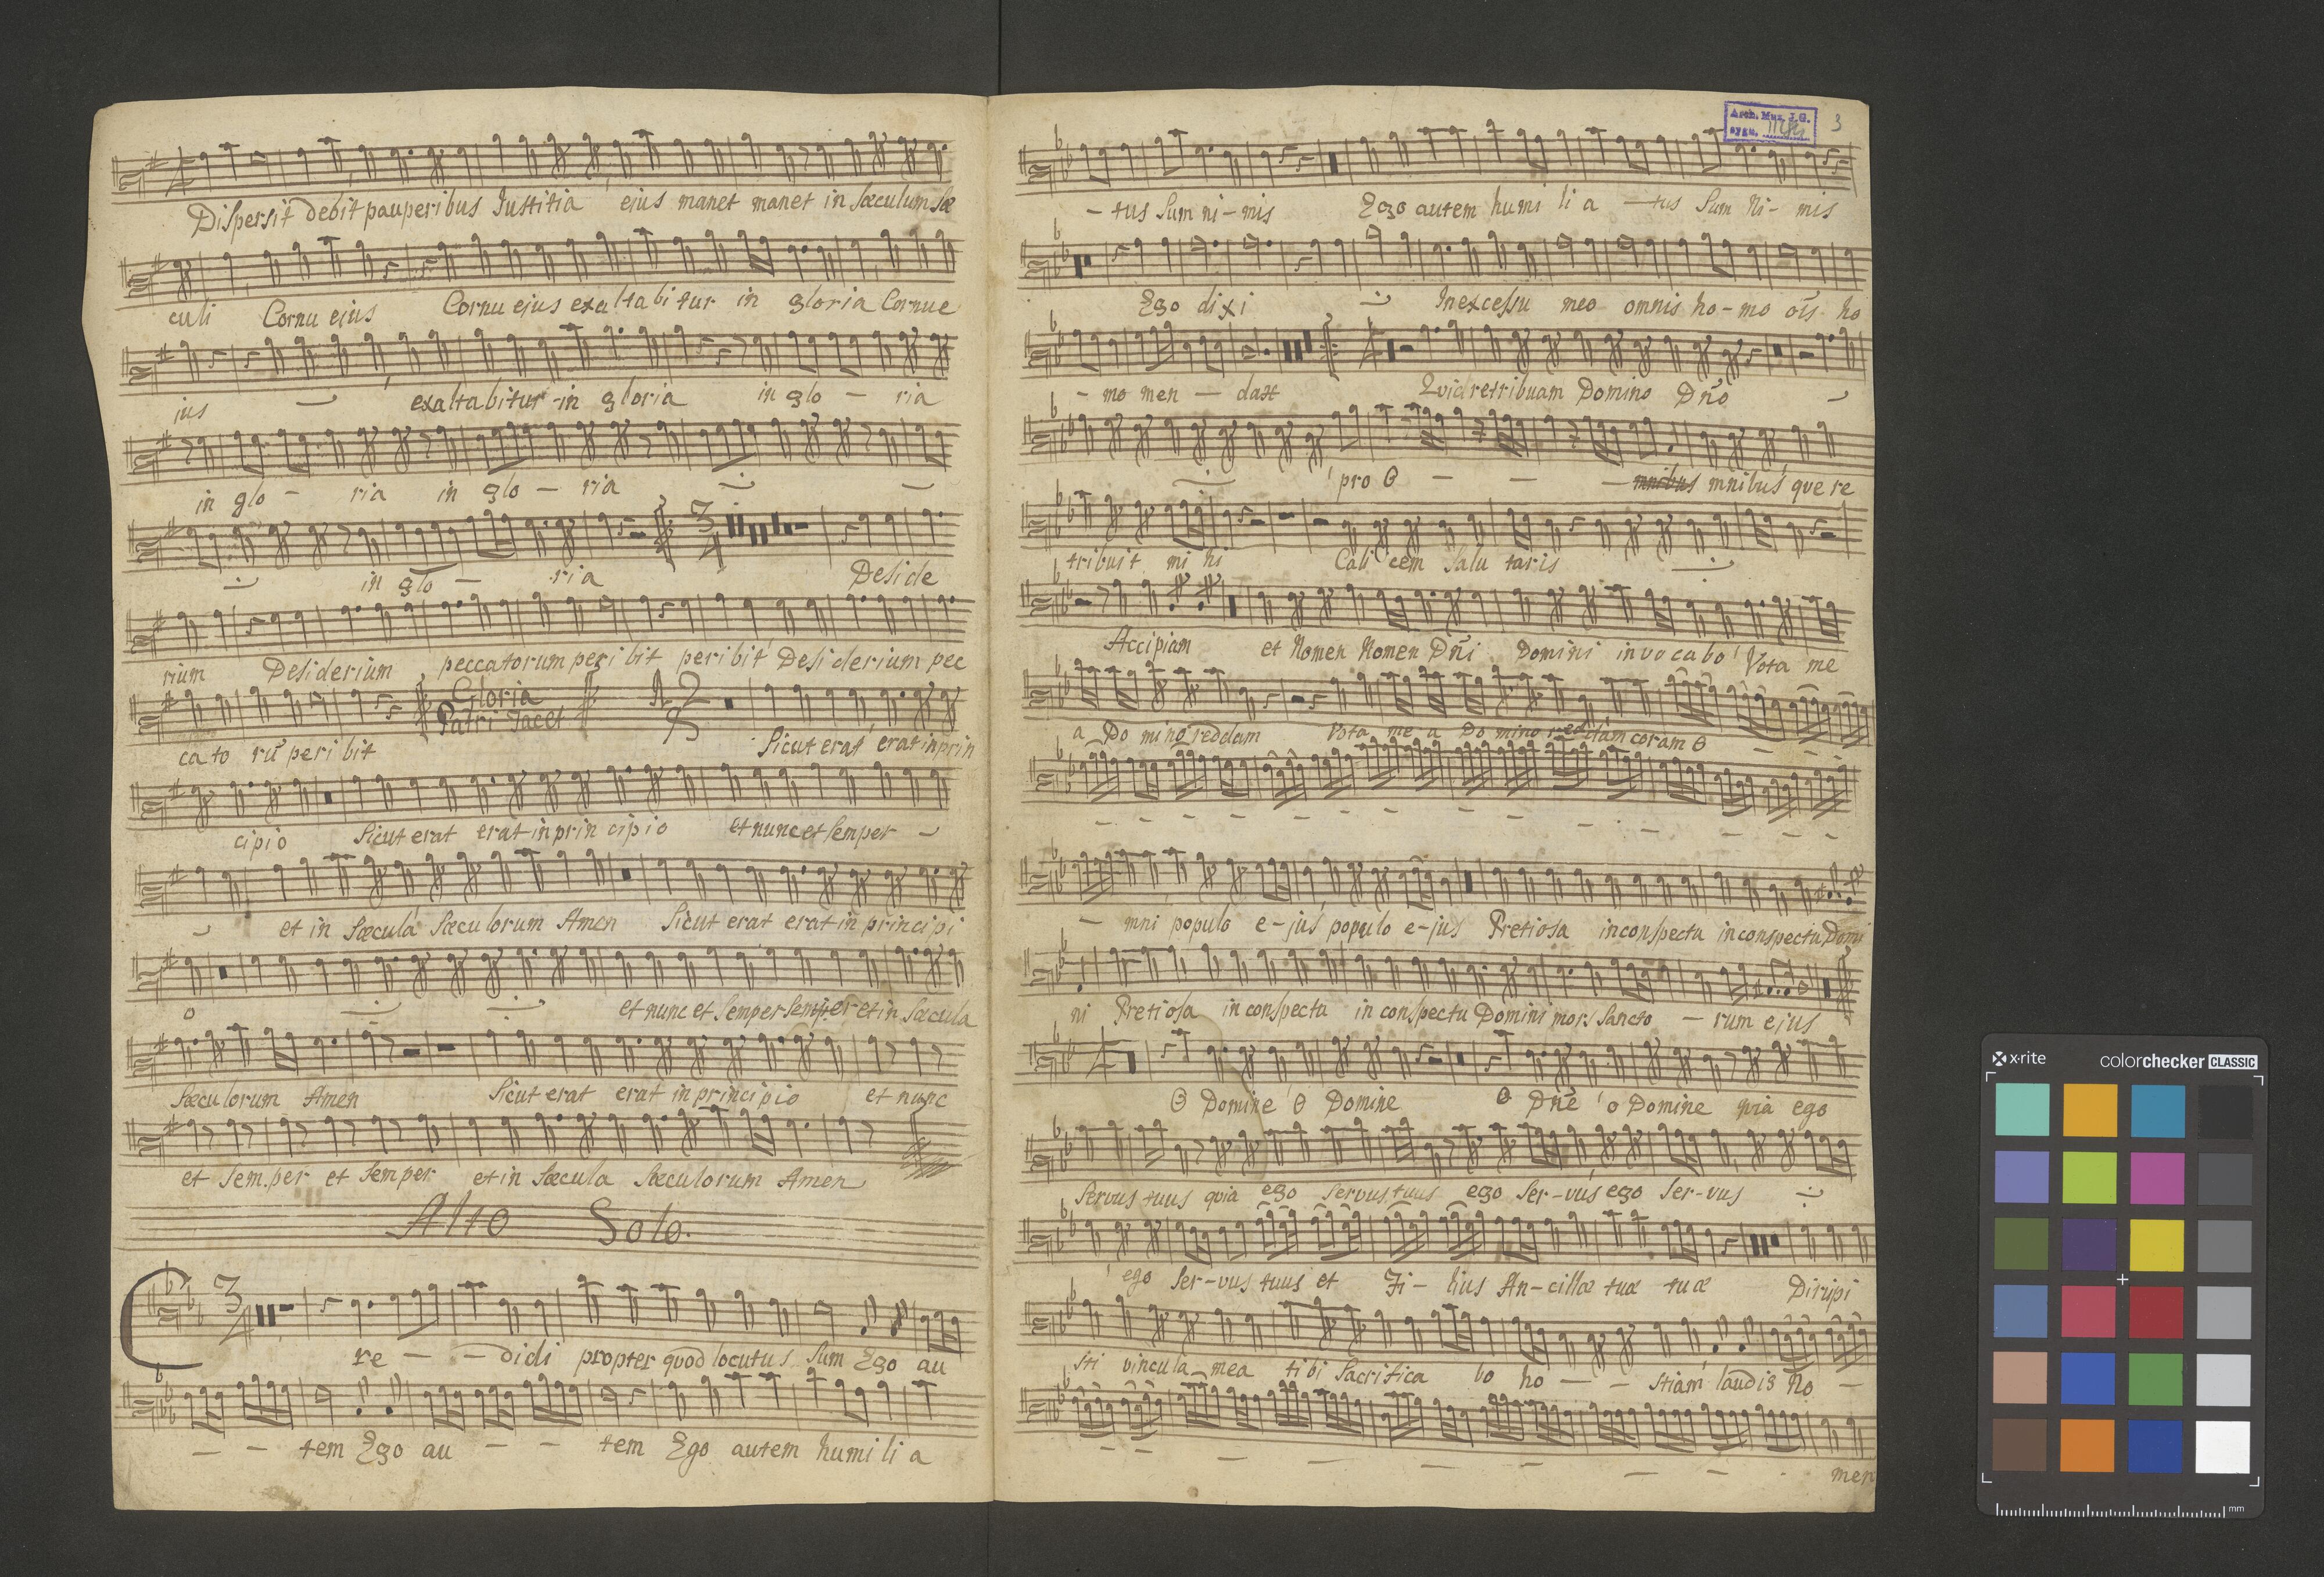 Dispersit debit pauperibus Iustitia ejus manet manet in Sæculum Sæ
culi Cornu ejus Cornu ejus exaltabitur in gloria Cornu e
jus exaltabitur in gloria in glo - ria
in glo - ria in glo - ria
in glo - ria 3/4 Deside
rium Desiderium peccatorum peribit peribit Desiderium pec
Gloria
Patri Tacet
cato rū peribit Sicut erat erat in prin
cipio Sicut erat erat in principio et nunc et Semper
et in Sæcula Sæculorum Amen Sicut erat erat in principi
o et nunc et Semper Semper et in Sæcula
Sæculorum Amen Sicut erat erat in principio et nunc
et Semper et Semper et in Sæcula Sæculorum Amen
Alto Solo.
3/4
re - - didi propter quod locutus Sum Ego au
- - tem Ego au - - tem Ego autem humilia
Arch. Muz. J.G.
sygn.
3
- tus Sum ni - mis Ego autem humi li a - tus Sum Ni - mis
Ego dixi In excessu meo omnis ho - mo oīs ho
- mo men - dax Quid retribuam Domino Dño
pro O - - - mnibus mnibus que re
tribuit mi hi Cali cem Salu taris
Accipiam et Nomen Nomen Dñi Domini invocabo Vota me
a Do mino reddam Vota me a Do mino reddam coram O
- mni populo e - jus populo e - jus Pretiosa in conspectu in conspectu Domi
ni Pretiosa in conspectu in conspectu Domini mors Sancto - rum ejus
O Domine O Domine O Dñe o Domine quia ego
Servus tuus quia ego Servus tuus ego Ser - vus ego Ser - vus
ego Ser - vus tuus et Fi - lius An - cillæ tuæ tuæ Dirupi
sti vincula mea tibi Sacrifica bo ho - - stiam laudis No -
men
x-rite colorchecker CLASSIC
mm